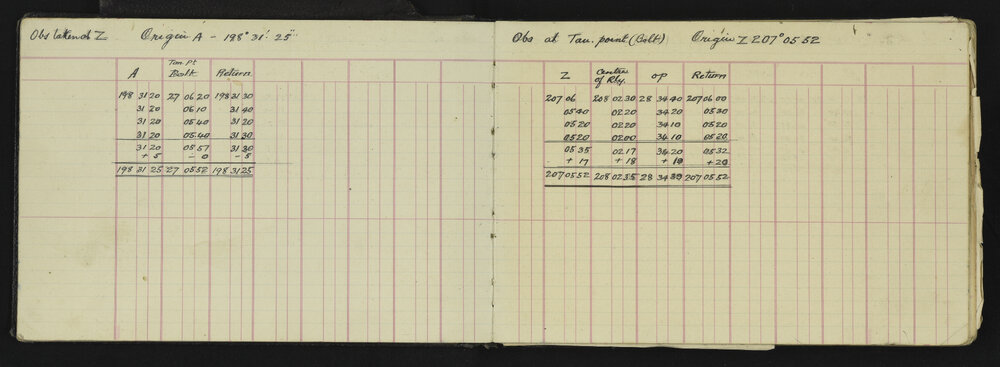 Obs taken at Z Origin A - 198° 31' 25"
Tan. Pt
A Bolt Return
198 31 20 27 06 20 198 31 30
31 20 06 10 31 40
31 20 05 40 31 20
31 20 05 40 31 30
31 20 05 57 31 30
+ 5 - 0 - 5
198 31 25 27 05 52 198 31 25
Obs at Tan. point (Bolt) Origin Z 207° 05 52
Z Centre of Rly. OP Return
207 06 208 02 30 28 34 40 207 06 00
05 40 02 20 34 20 05 30
05 20 02 20 34 10 05 20
05 20 02 00 34 10 05 20
05 35 02 17 34 20 05 32
+ 17 + 18 + 19 + 20
207 05 52 208 02 35 28 34 39 207 05 52